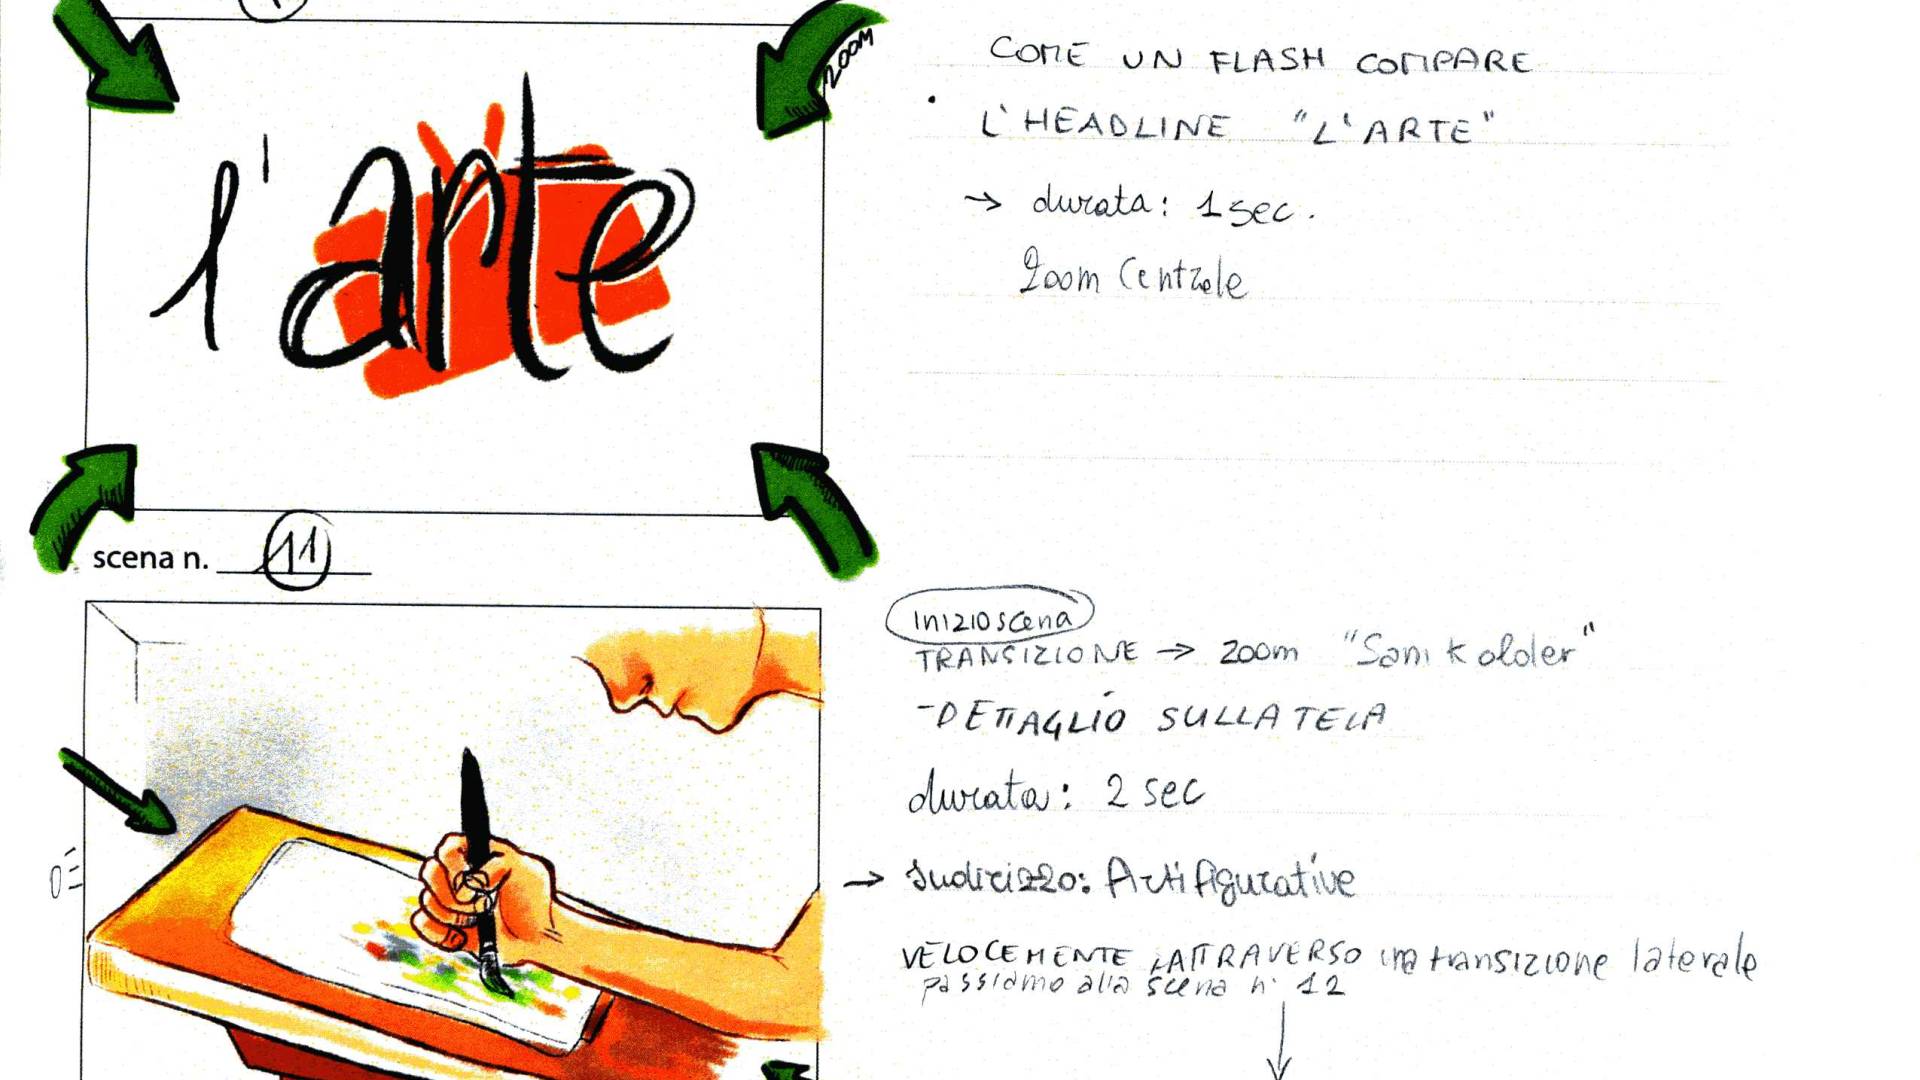 ZOOM
l'arte
COME UN FLASH COMPARE
L'HEADLINE "L'ARTE"
→ durata: 1 sec.
Zoom Centrale
scena n. 11
inizio scena
TRANSIZIONE → zoom "Sam Kolder"
-DETTAGLIO SULLA TELA
durata: 2 sec
→ Indirizzo: Arti figurative
VELOCEMENTE, ATTRAVERSO una transizione laterale
passiamo alla scena n. 12